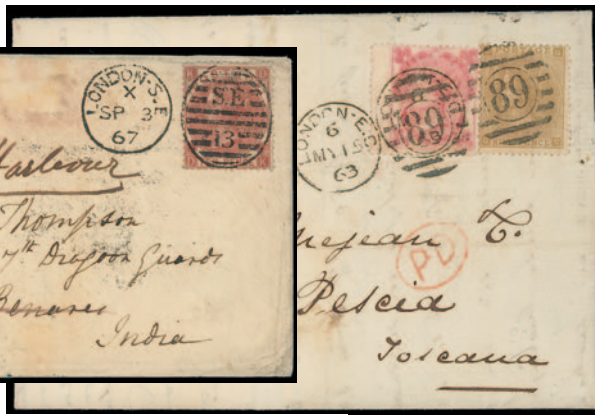 LONDON·S·E
X
SP 3
67
S.E
13
Harbour
Thompson
7th Dragoon Guards
Benares
India
LONDON·E·C
6
MY 15
63
89
89
PD
Pescia
Toscana